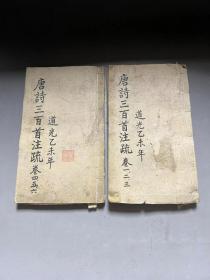 道光乙未年
唐詩三百首注疏 卷一二三
道光乙未年
唐詩三百首注疏 卷四五六